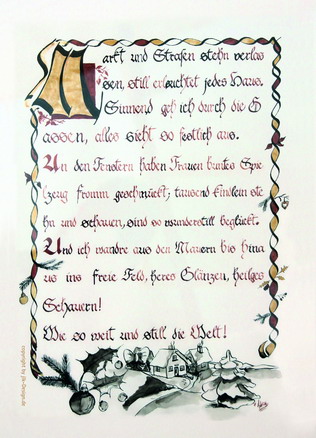 Markt und Straßen stehn verlas
sen, still erleuchtet jedes Haus.
Sinnend geh ich durch die G
assen, alles sieht so festlich aus.
An den Fenstern haben Frauen buntes Spie
lzeug fromm geschmückt, tausend Kindlein ste
hn und schauen, sind so wunderstill beglückt.
Und ich wandre aus den Mauern bis hina
us ins freie Feld, heres Glänzen, heilges
Schauern!
Wie so weit und still die Welt!